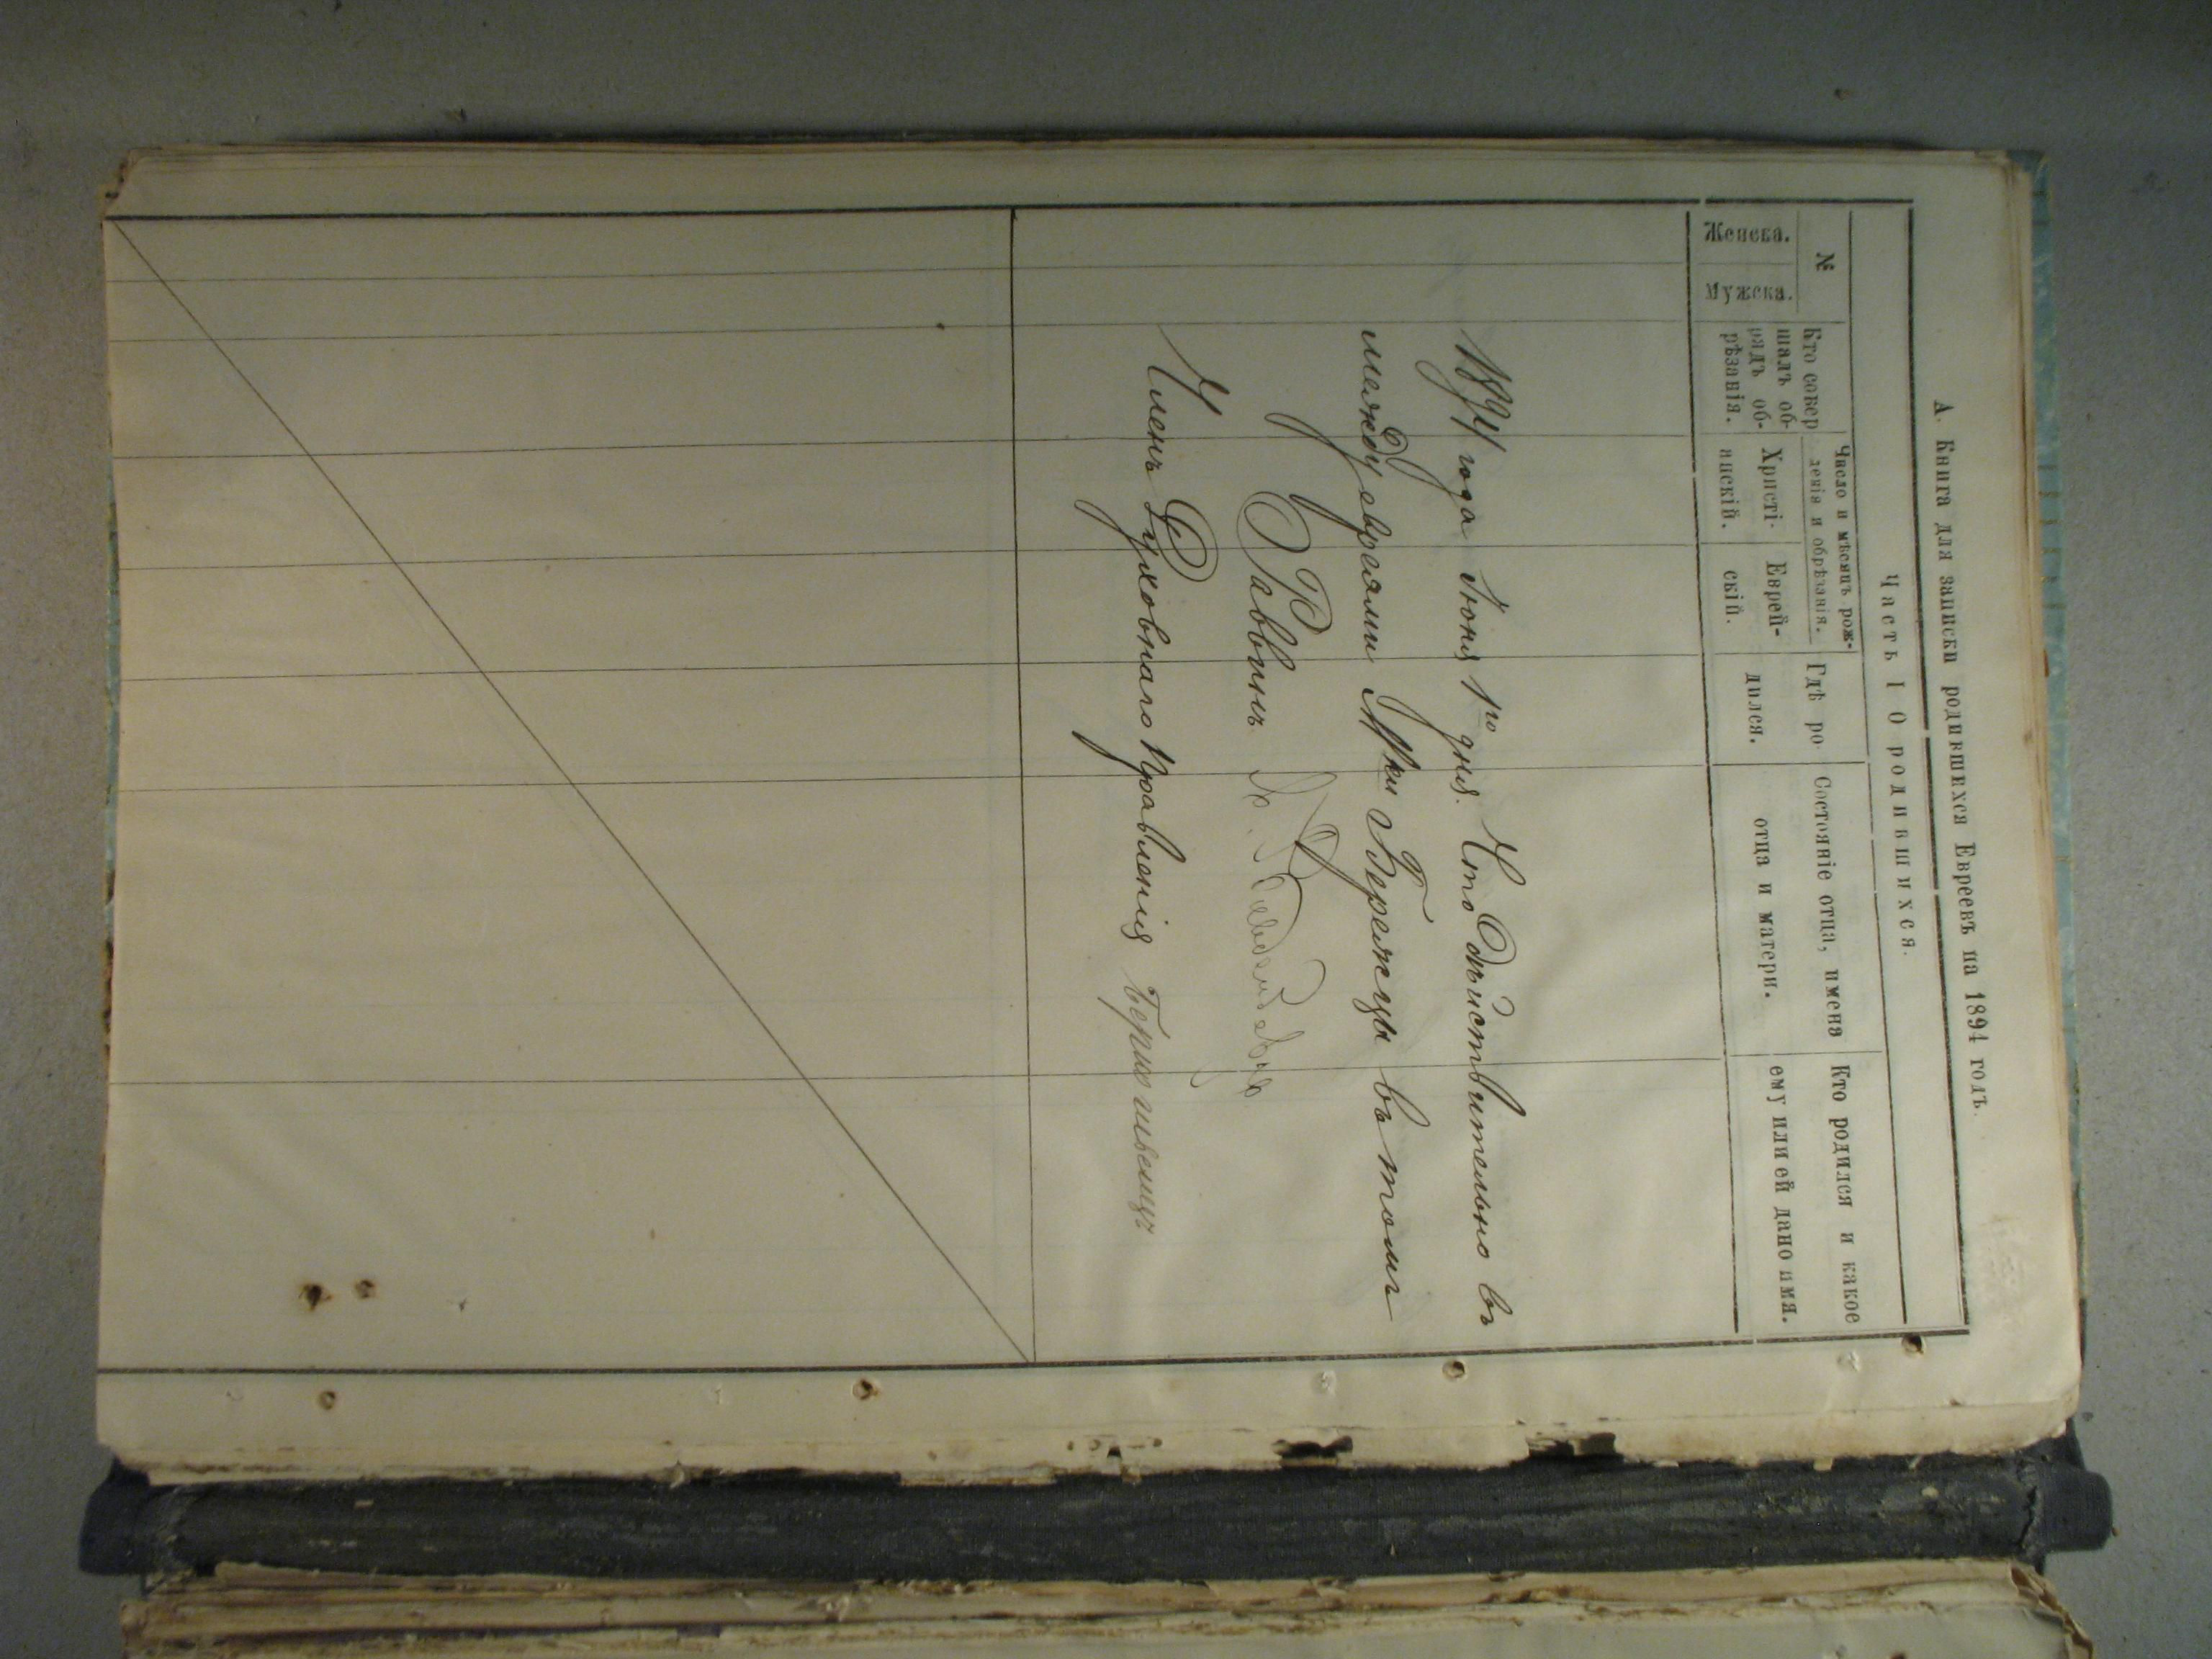 А. Книга для записки родившихся Евреевъ на 1894 годъ.
Часть I О родившихся.
№
Женска.
Мужска.
Кто совер
шалъ об-
рядъ об-
рѣзанія.
Число и мѣсяцъ рож-
денія и обрѣзанія.
Христі-
анскій.
Еврей-
скій.
Гдѣ ро-
дился.
Состояніе отца, имена
отца и матери.
Кто родился и какое
ему или ей дано имя.
1894 года Іюня 1го дня. Что дѣйствительно въ
между евреями М-ки Бережцы въ томъ
Раввинъ
Членъ Духовнаго Правленія Берко